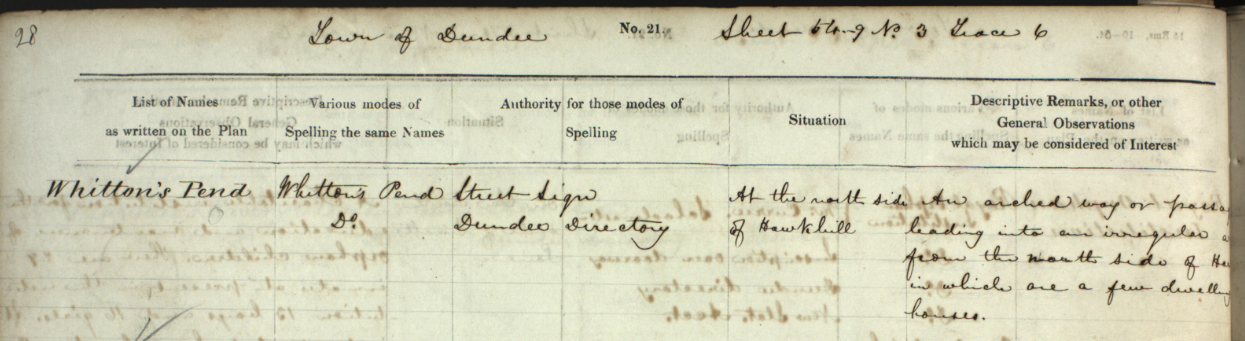 28 Town of Dundee No. 21. Sheet No. 3 Trace 6
List of Names Various modes of Authority for those modes of Situation Descriptive Remarks, or other
as written on the Plan Spelling the same Names Spelling General Observations
which may be considered of Interest
Whitton's Pend Whitton's Pend Street Sign At the north side An arched way or passa
Do. Dundee Directory of Hawkhill leading into an irregular a
from the north side of Ha
in which are a few dwelling
houses.